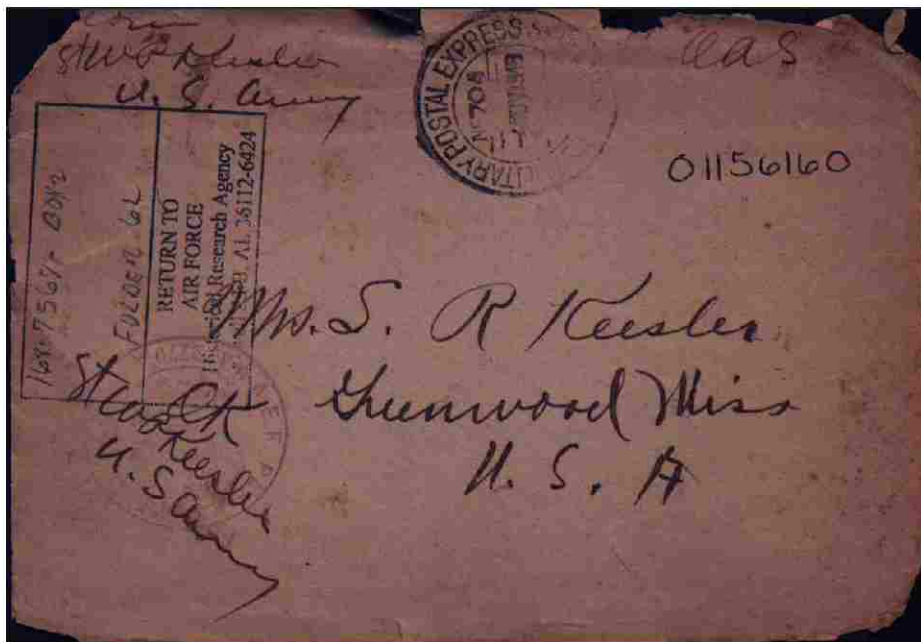 U. S. Army
OAS
MILITARY POSTAL EXPRESS
No 702
01156160
168.7567- BOX 2
FOLDER 62
RETURN TO
AIR FORCE
Historical Research Agency
Al. 36112-6424
Mrs. S. R Keesler
Greenwood Miss
U. S. A
OK
Keesler
U. S Army